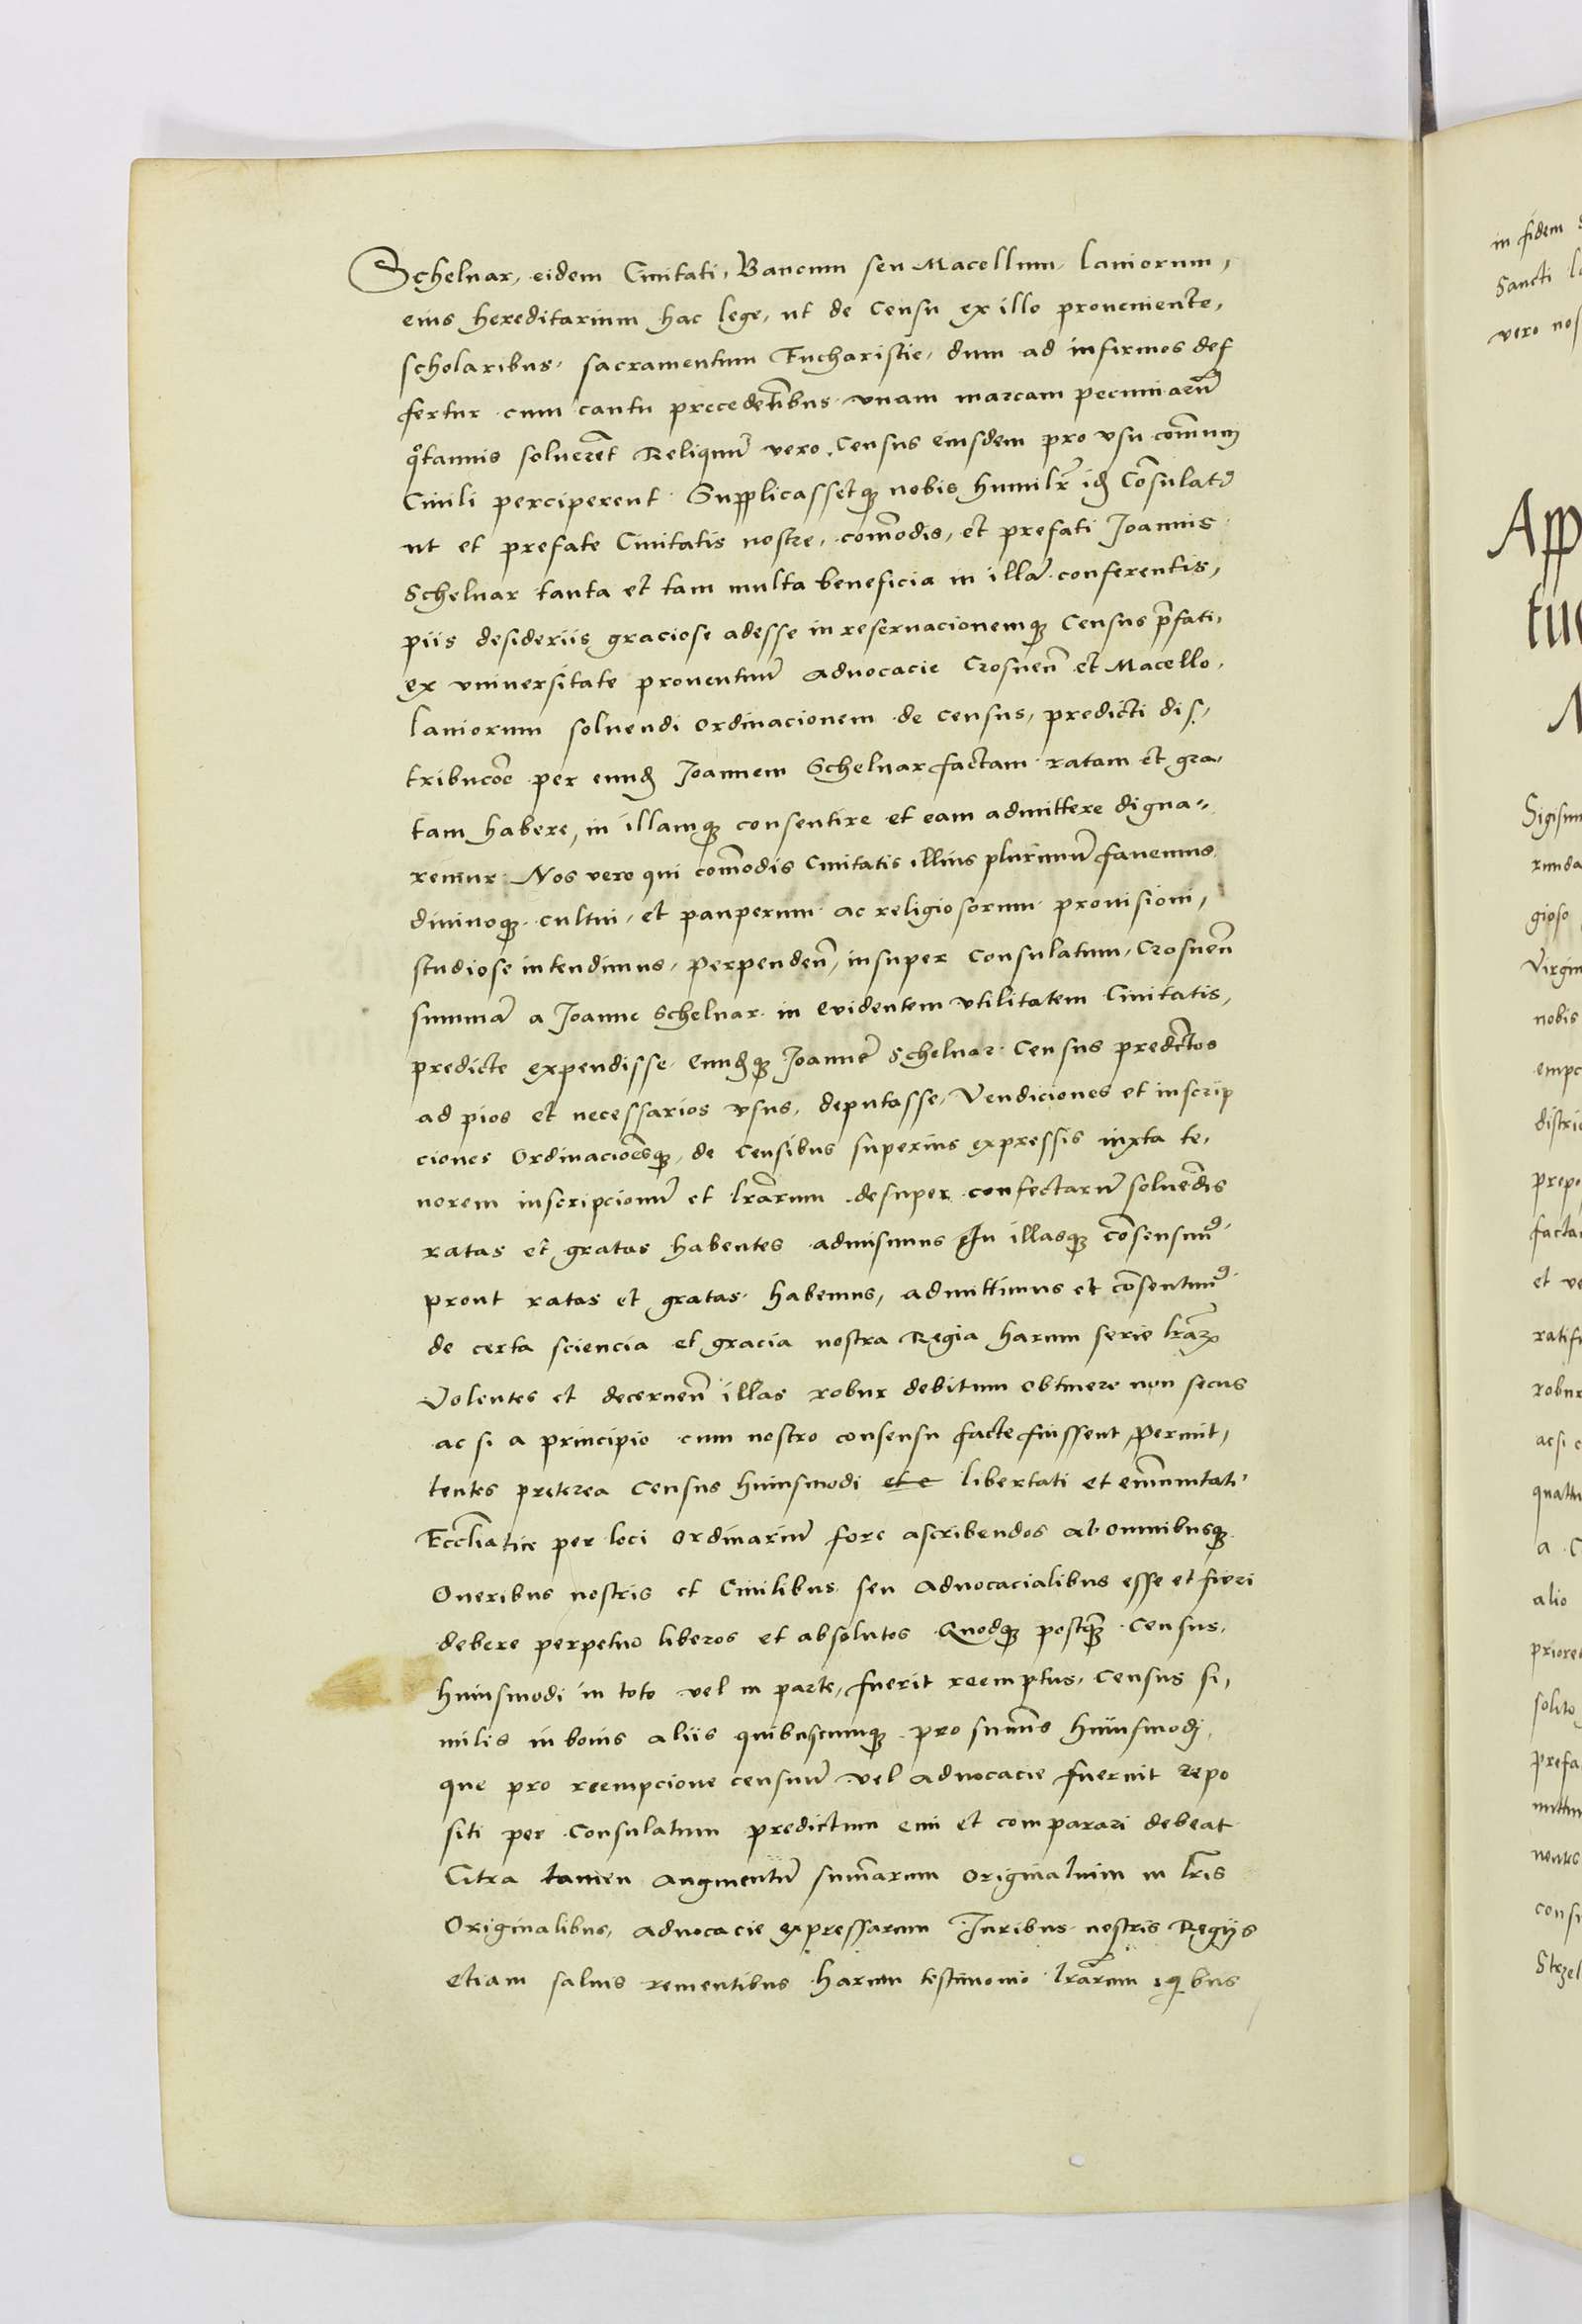 Schelnar, eidem Ciuitati, Bancum seu Macellum laniorum,
eius hereditarium hac lege, ut de Censu ex illo proueniente,
scholaribus, sacramentum Eucharistie, dum ad infirmos def
fertur cum cantu precedẽtibus vnam marcam pecuniarũ
q̃tannis soluerẽt Reliquũ vero Census eiusdem pro vsu comuni
Ciuili perciperent Supplicassetq₃ nobis humilr̃ idẽ Cõsulatꝰ
ut et prefate Ciuitatis nostre, comõdis, et prefati Joannis
Schelnar tanta et tam multa beneficia in illã conferentis,
piis desideriis graciose adesse in reseruacionemq₃ Census p̃fati,
ex vniuersitate prouentuũ Aduocacie Crosneñ et Macello,
laniorum soluendi Ordinacionem de census, predicti dis,
tribucõe per eundẽ Joannem Schelnar factam ratam et gra,
tam habere, in illamq₃ consentire et eam admittere digna,,
remur Nos vero qui comõdis Ciuitatis illius plurimũ fauemus
diuinoq₃ cultui, et pauperum ac religiosorum prouisioni,
studiose intendimus, Perpendeñ, insuper Consulatum, Crosneñ
summã a Joanne Schelnar in Euidentem vtilitatem Ciuitatis,
predicte expendisse Eundẽq₃ Joannẽ Schelnar Census predictos
ad pios et necessarios vsus, deputasse, Vendiciones et inscrip
ciones Ordinaciõesq₃, de Censibus superius expressis iuxta te,
norem inscripcionũ et lrãrum desuper confectarũ soluẽdis
ratas et gratas habentes admisimus In illasq₃ cõsensimꝰ
prout ratas et gratas habemus, admittimus et cõsentimꝰ
de certa sciencia et gracia nostra Regia harum serie lrãꝝ
Volentes et decerneñ illas robur debitum obtinere non secus
ac si a principio cum nostro consensu facte fuissent, Permit,
tentes preterea Census huiusmodi et e libertati et emũnitati
Eccl̃iatice per loci Ordinariũ fore ascribendos ab omnibusq₃
Oneribus nostris et Ciuilibus seu aduocacialibus esse et fieri
debere perpetuo liberos et absolutos Quodq₃ postq̃₃ Census,
huiusmodi in toto vel in parte, fuerit reemptus, Census si,
milis in bonis aliis quibuscumq₃ pro summis huiusmodi,
que pro reempcione censuũ vel aduocacie fuerint repo
siti per Consulatum predictum emi et comparari debeat
Citra tamen augmentũ sumãrum originalium in lr̃is
Originalibus, aduocacie expressarum Juribus nostris Regiis
etiam saluis rementibus Harum testimonio lrãrum iqꝫbus
in fidem
Sancti
vero nos
App
Sigism
runda
gioso
Virgin
nobis
empc
distri
prepo
facta
et ve
ratifi
robur
acsi c
quattu
a
alio
priore
solito
prefa
mittim
nentes
consi
Strzel